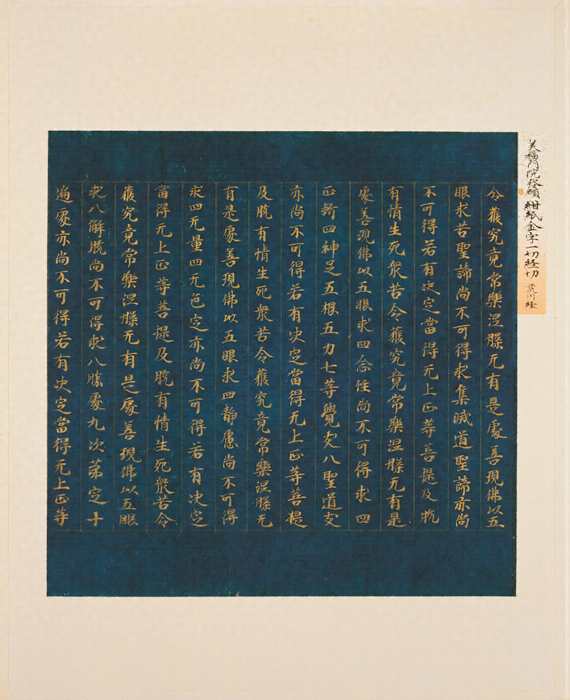 美福門院発願 紺紙金字一切経切 荒川経
令獲究竟常樂涅槃无有是處善現佛以五
眼求苦聖諦尚不可得求集滅道聖諦亦尚
不可得若有決定當得无上正等菩提及脫
有情生死衆苦令獲究竟常樂涅槃无有是
處善現佛以五眼求四念住尚不可得求四
正斷四神足五根五力七等覺支八聖道支
亦尚不可得若有決定當得无上正等菩提
及脫有情生死衆苦令獲究竟常樂涅槃无
有是處善現佛以五眼求四靜慮尚不可得
求四无量四无色定亦尚不可得若有決定
當得无上正等菩提及脫有情生死衆苦令
獲究竟常樂涅槃无有是處善現佛以五眼
求八解脫尚不可得求八勝處九次第定十
遍處亦尚不可得若有決定當得无上正等